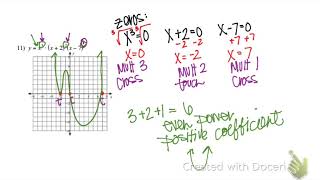 zeros:
11) y = x³ (x + 2)² (x − 7)
∛x³ = ∛0   x+2=0   x-7=0
-2 -2   +7 +7
x=0   x=-2   x=7
Mult 3   Mult 2   Mult 1
cross   touch   cross
3+2+1=6
even power
positive coefficient
Created with Doceri